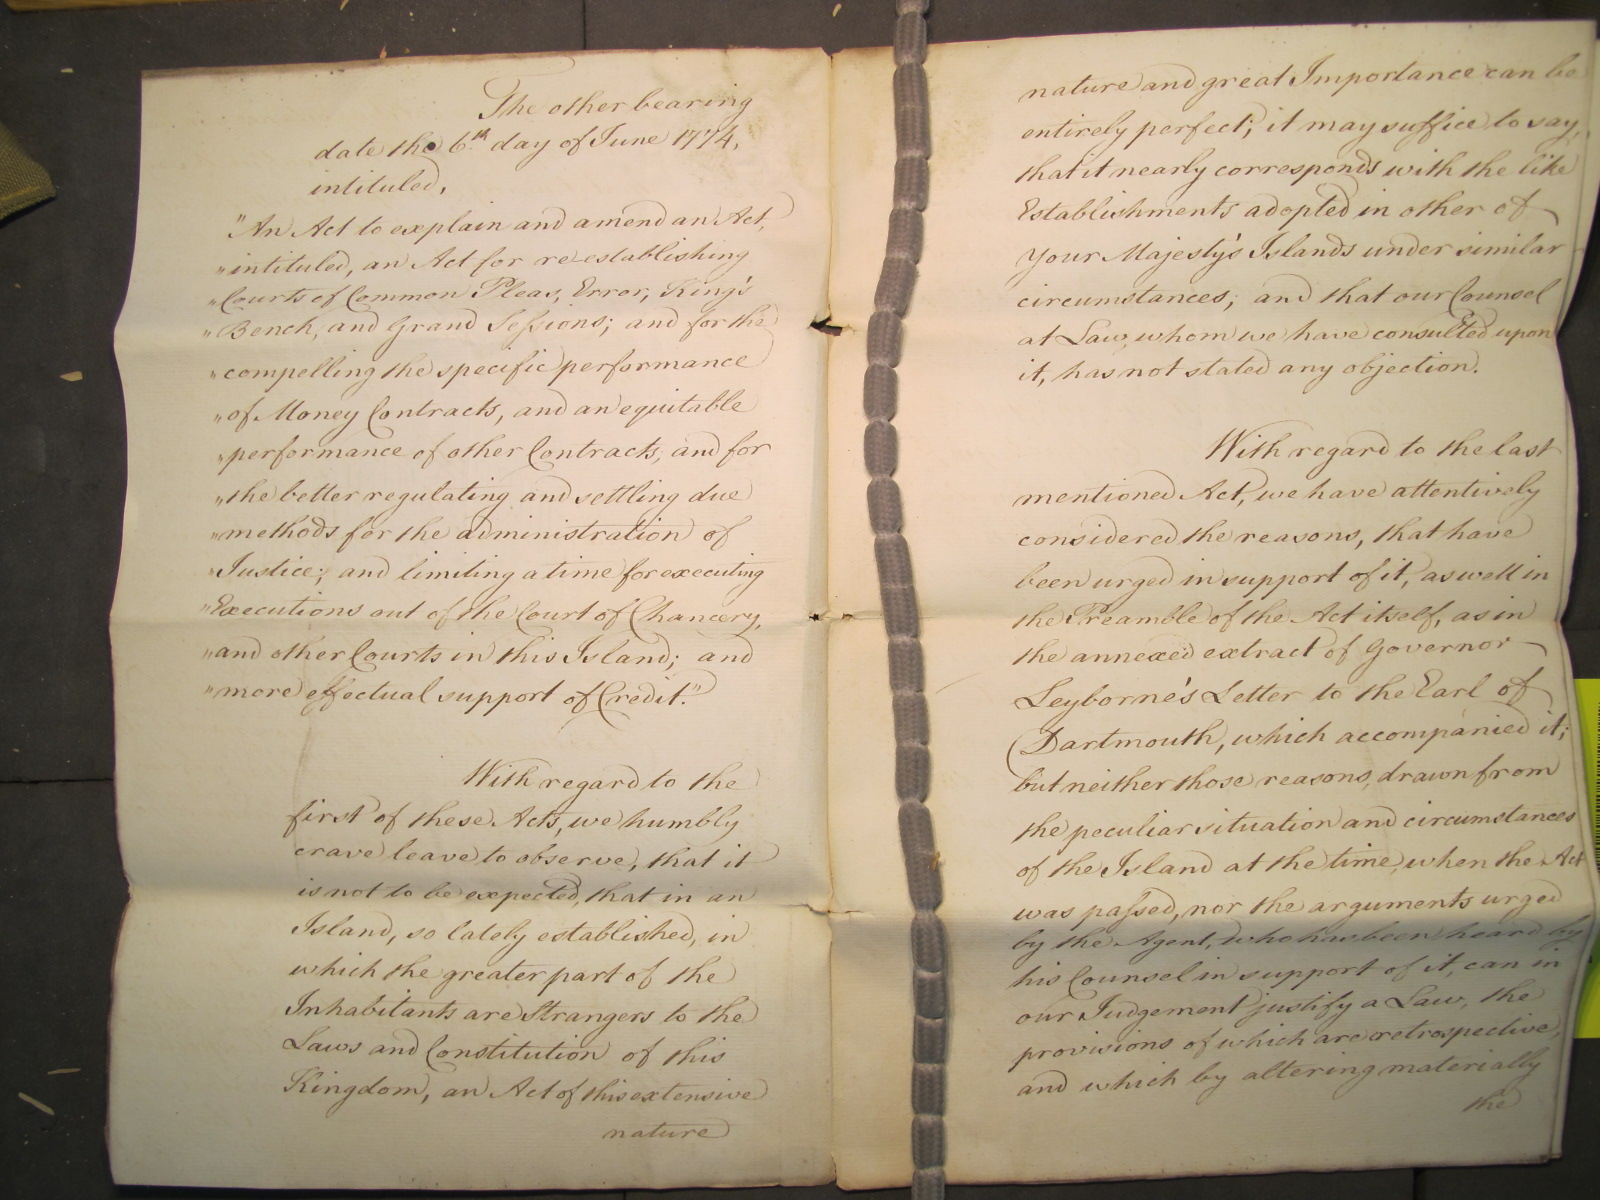 The other bearing
date the 6th. day of June 1774,
intituled,
"An Act to explain and amend an Act,
"intituled, an Act for re-establishing
"Courts of Common Pleas, Error, King's
"Bench, and Grand Sessions; and for the
"compelling the specific performance
"of Money Contracts, and an equitable
"performance of other Contracts; and for
"the better regulating and settling due
"methods for the administration of
"Justice; and limiting a time for executing
"Executions out of the Court of Chancery,
"and other Courts in this Island; and
"more effectual support of Credit."
With regard to the
first of these Acts, we humbly
crave leave to observe, that it
is not to be expected, that in an
Island, so lately established, in
which the greater part of the
Inhabitants are Strangers to the
Laws and Constitution of this
Kingdom, an Act of this extensive
nature
nature and great Importance can be
entirely perfect; it may suffice to say,
that it nearly corresponds with the like
Establishments adopted in other of
Your Majesty's Islands under similar
circumstances; and that our Counsel
at Law, whom we have consulted upon
it, has not stated any objection.
With regard to the last
mentioned Act, we have attentively
considered the reasons, that have
been urged in support of it, as well in
the Preamble of the Act itself, as in
the annexed extract of Governor
Leyborne's Letter to the Earl of
Dartmouth, which accompanied it;
but neither those reasons, drawn from
the peculiar situation and circumstances
of the Island at the time, when the Act
was passed, nor the arguments urged
by the Agent, who has been heard by
his Counsel in support of it, can in
our Judgement justify a Law, the
provisions of which are retrospective,
and which by altering materially
the